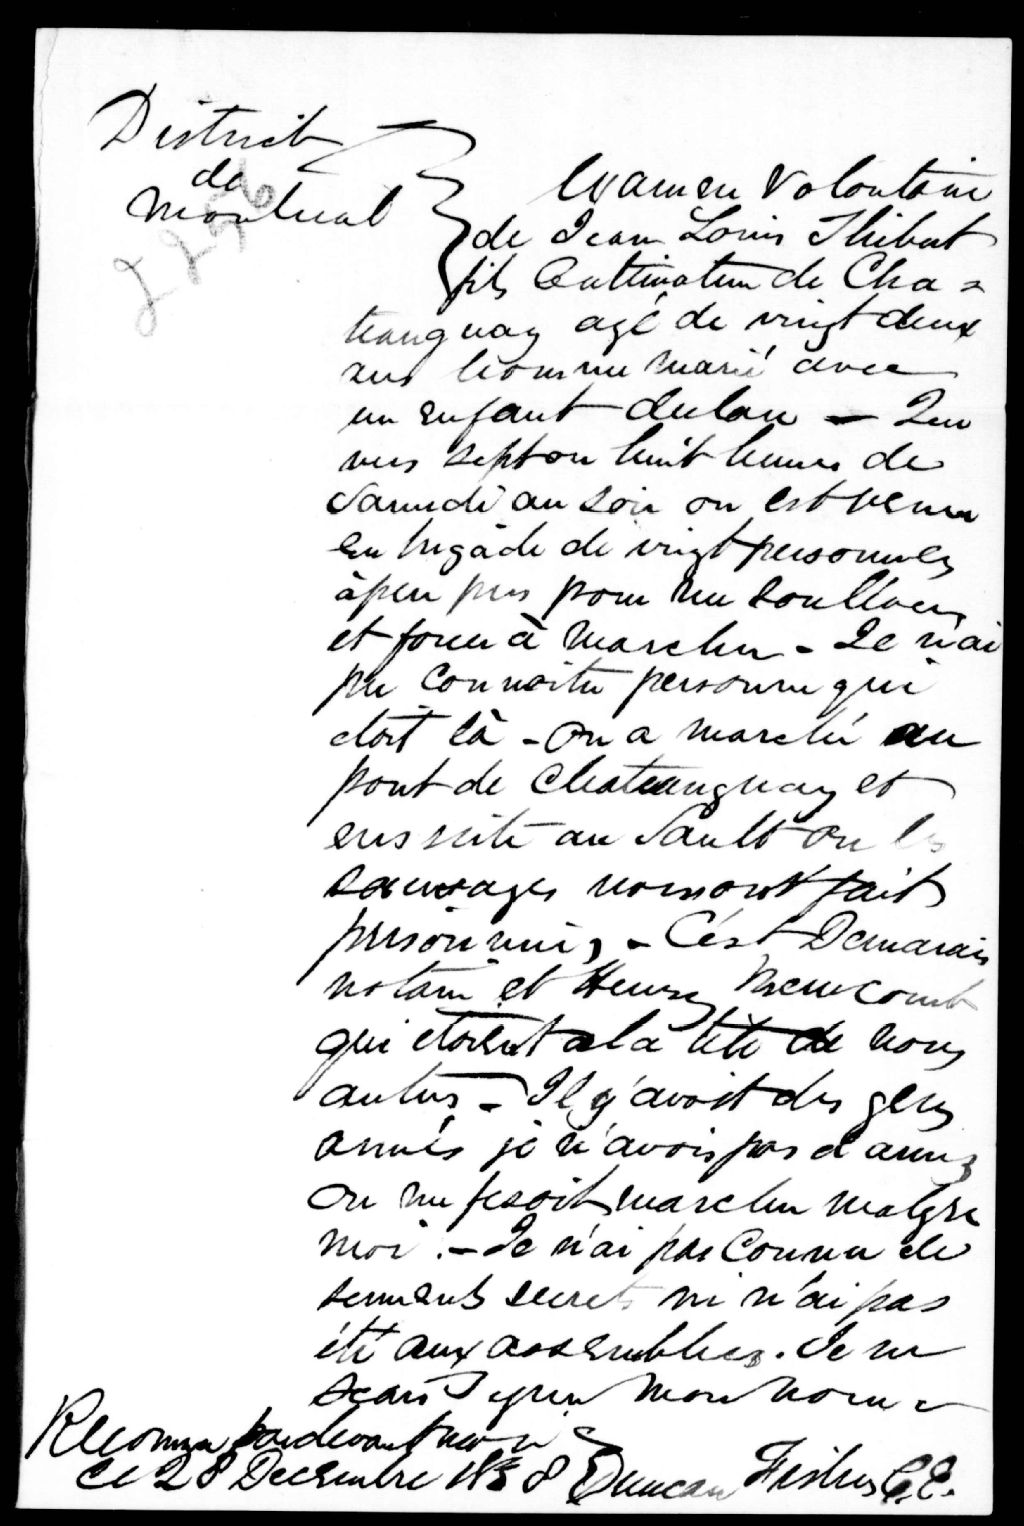 District
de
Montreal
2256
Examen Volontaire
de Jean Louis Thibert
fils Cultivateur de Cha =
teauguay agé de vingt deux
ans homme marié avec
un enfant declare — Que
vers sept ou huit heures de
Samedi au soir on est venu
en brigade de vingt personnes
à peu pres pour me soullever
et forcer à marcher - Je n'ai
pu connoitre personne qui
etoit là - On a marché au
pont de Chateauguay et
ensuite au Sault ou les
sauvages nous ont fait
prisonniers, - C'ést Demarais
notaire et Henry Newcomb
qui etoient a la tête de nous
autres - Il y'avoit des gens
armés je n'avois pas d'armes
On me fesoit marcher malgre
moi . - Je n'ai pas connu de
serments secrets ni n'ai pas
été aux assemblees. Je ne
scais signer mon nom -
Reconnu pardevant moi
ce 28 Decembre 1838 Duncan Fisher C.E.